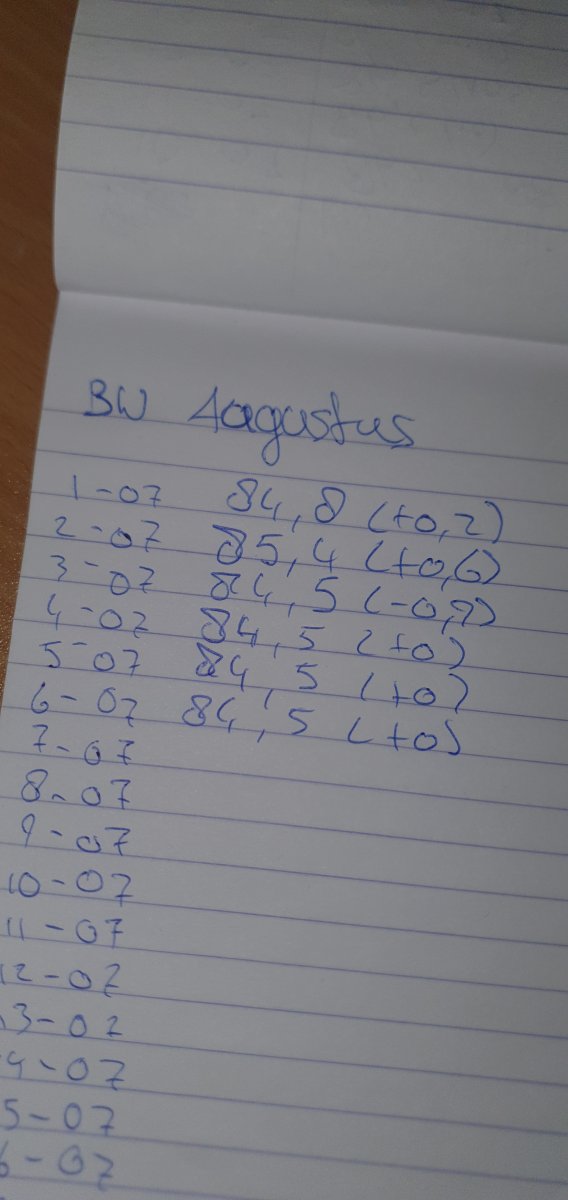 BW Aagustus
1-07 84,8 (+0,2)
2-07 85,4 (+0,6)
3-07 84,5 (-0,9)
4-07 84,5 (+0)
5-07 84,5 (+0)
6-07 84,5 (+0)
7-07
8-07
9-07
10-07
11-07
12-07
13-07
4-07
5-07
6-07